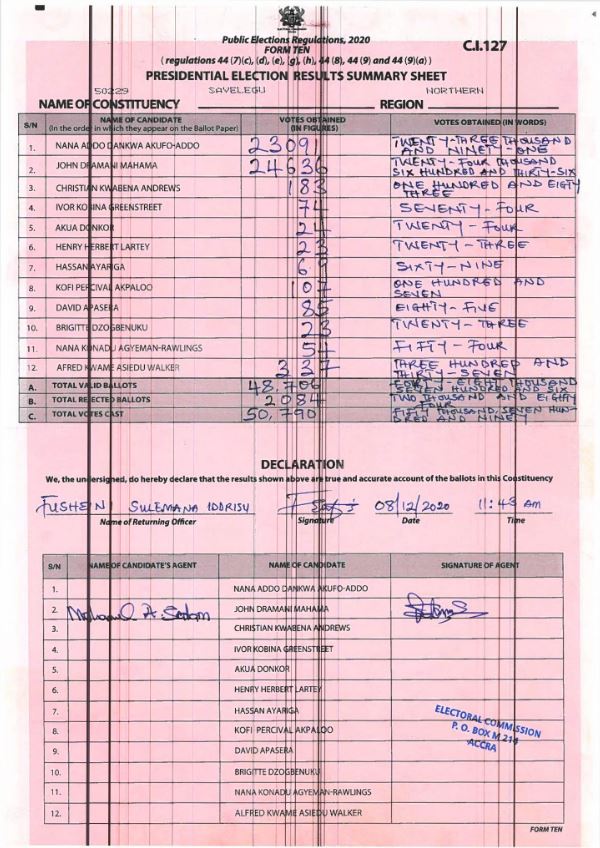 Public Elections Regulations, 2020
FORM TEN
C.I.127
( regulations 44 (7)(c), (d), (e), (g), (h), 44 (8), 44 (9) and 44 (9)(a) )
PRESIDENTIAL ELECTION RESULTS SUMMARY SHEET
50229 SAVELEGU NORTHERN
NAME OF CONSTITUENCY REGION
S/N NAME OF CANDIDATE (In the order in which they appear on the Ballot Paper) VOTES OBTAINED (IN FIGURES) VOTES OBTAINED (IN WORDS)
1. NANA ADDO DANKWA AKUFO-ADDO 23091 TWENTY-THREE THOUSAND AND NINETY-ONE
2. JOHN DRAMANI MAHAMA 24636 TWENTY-FOUR THOUSAND SIX HUNDRED AND THIRTY-SIX
3. CHRISTIAN KWABENA ANDREWS 183 ONE HUNDRED AND EIGTY THREE
4. IVOR KOBINA GREENSTREET 74 SEVENTY-FOUR
5. AKUA DONKOR 24 TWENTY-FOUR
6. HENRY HERBERT LARTEY 23 TWENTY-THREE
7. HASSAN AYARIGA 69 SIXTY-NINE
8. KOFI PERCIVAL AKPALOO 107 ONE HUNDRED AND SEVEN
9. DAVID APASERA 85 EIGHTY-FIVE
10. BRIGITTE DZOGBENUKU 23 TWENTY-THREE
11. NANA KONADU AGYEMAN-RAWLINGS 54 FIFTY-FOUR
12. AFRED KWAME ASIEDU WALKER 337 THREE HUNDRED AND THIRTY-SEVEN
A. TOTAL VALID BALLOTS 48,706 FORTY-EIGHT THOUSAND SEVEN HUNDRED AND SIX
B. TOTAL REJECTED BALLOTS 2084 TWO THOUSAND AND EIGHTY FOUR
C. TOTAL VOTES CAST 50,790 FIFTY THOUSAND, SEVEN HUNDRED AND NINETY
DECLARATION
We, the undersigned, do hereby declare that the results shown above are true and accurate account of the ballots in this Constituency
FUSHEINI SULEMANA IDDRISU 08/12/2020 11:43 am
Name of Returning Officer Signature Date Time
S/N NAME OF CANDIDATE'S AGENT NAME OF CANDIDATE SIGNATURE OF AGENT
1. NANA ADDO DANKWA AKUFO-ADDO
2. JOHN DRAMANI MAHAMA
3. CHRISTIAN KWABENA ANDREWS
4. IVOR KOBINA GREENSTREET
5. AKUA DONKOR
6. HENRY HERBERT LARTEY
7. HASSAN AYARIGA
8. KOFI PERCIVAL AKPALOO
9. DAVID APASERA
10. BRIGITTE DZOGBENUKU
11. NANA KONADU AGYEMAN-RAWLINGS
12. ALFRED KWAME ASIEDU WALKER
ELECTORAL COMMISSION
P. O. BOX M 214
ACCRA
FORM TEN